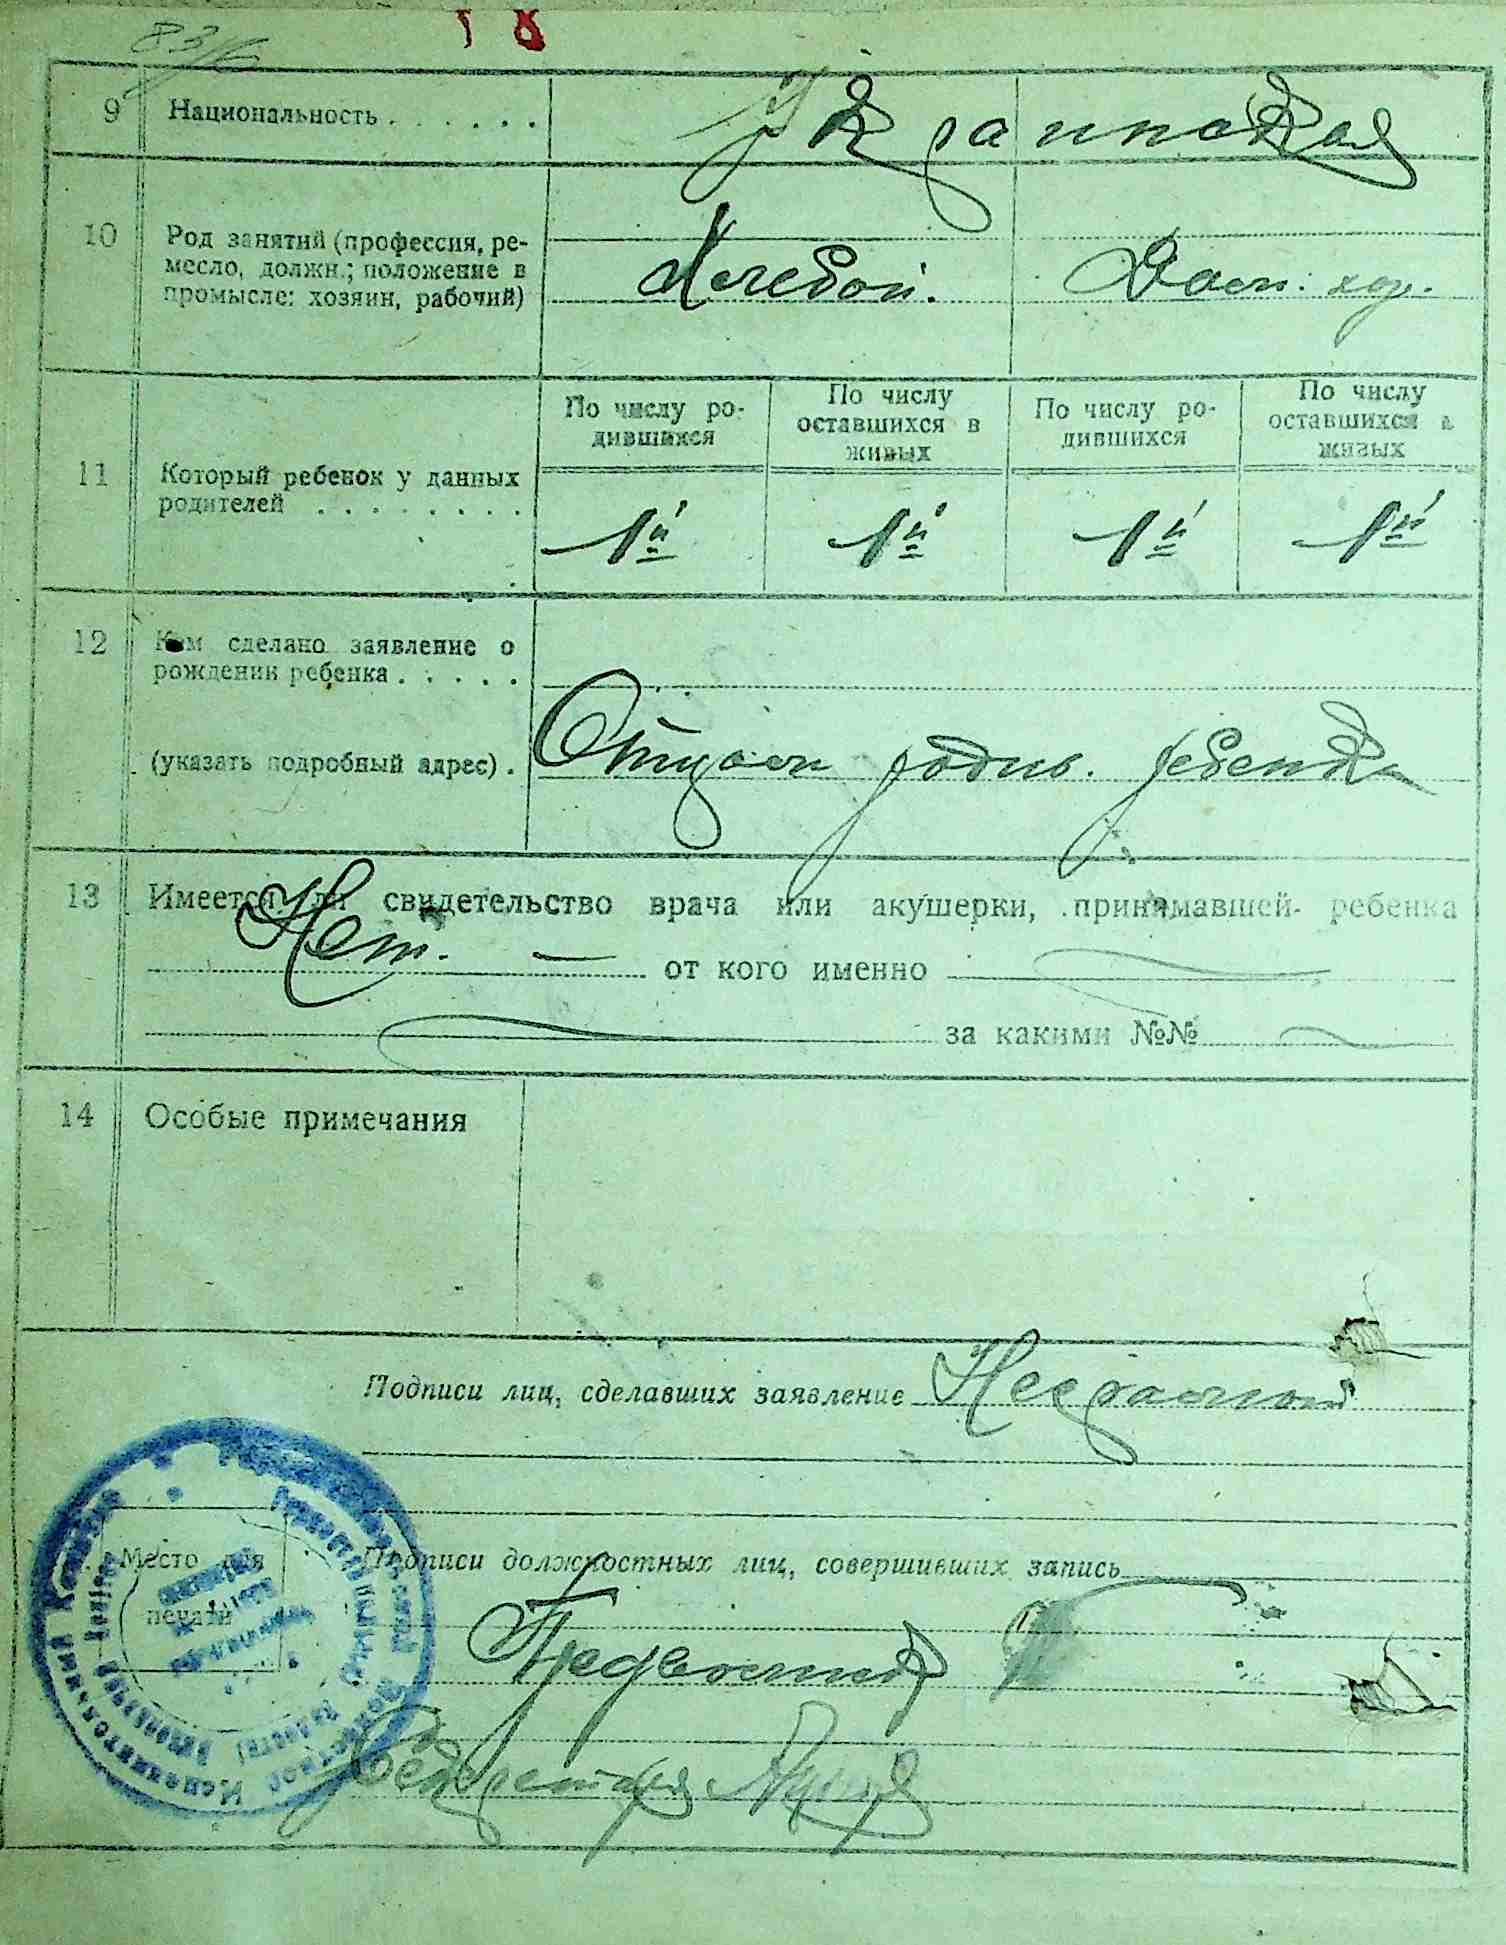 83/6
18
9 Национальность . . . . . . Украинская
10 Род занятий (профессия, ре-
месло, должн.; положение в
промысле: хозяин, рабочий)
Хлебоп. Дом. хоз.
По числу ро-
дившихся
По числу
оставшихся в
живых
По числу ро-
дившихся
По числу
оставшихся в
живых
11 Который ребенок у данных
родителей . . . . . . . .
1й 1й 1й 1й
12 Кем сделано заявление о
рождении ребенка . . . . .
(указать подробный адрес) .
Отцом родив. ребенка
13 Имеется ли свидетельство врача или акушерки, принимавшей ребенка
Нет. — от кого именно
за какими №№
14 Особые примечания
Подписи лиц, сделавших заявление
Место для
печати
Подписи должностных лиц, совершивших запись
Секретарь